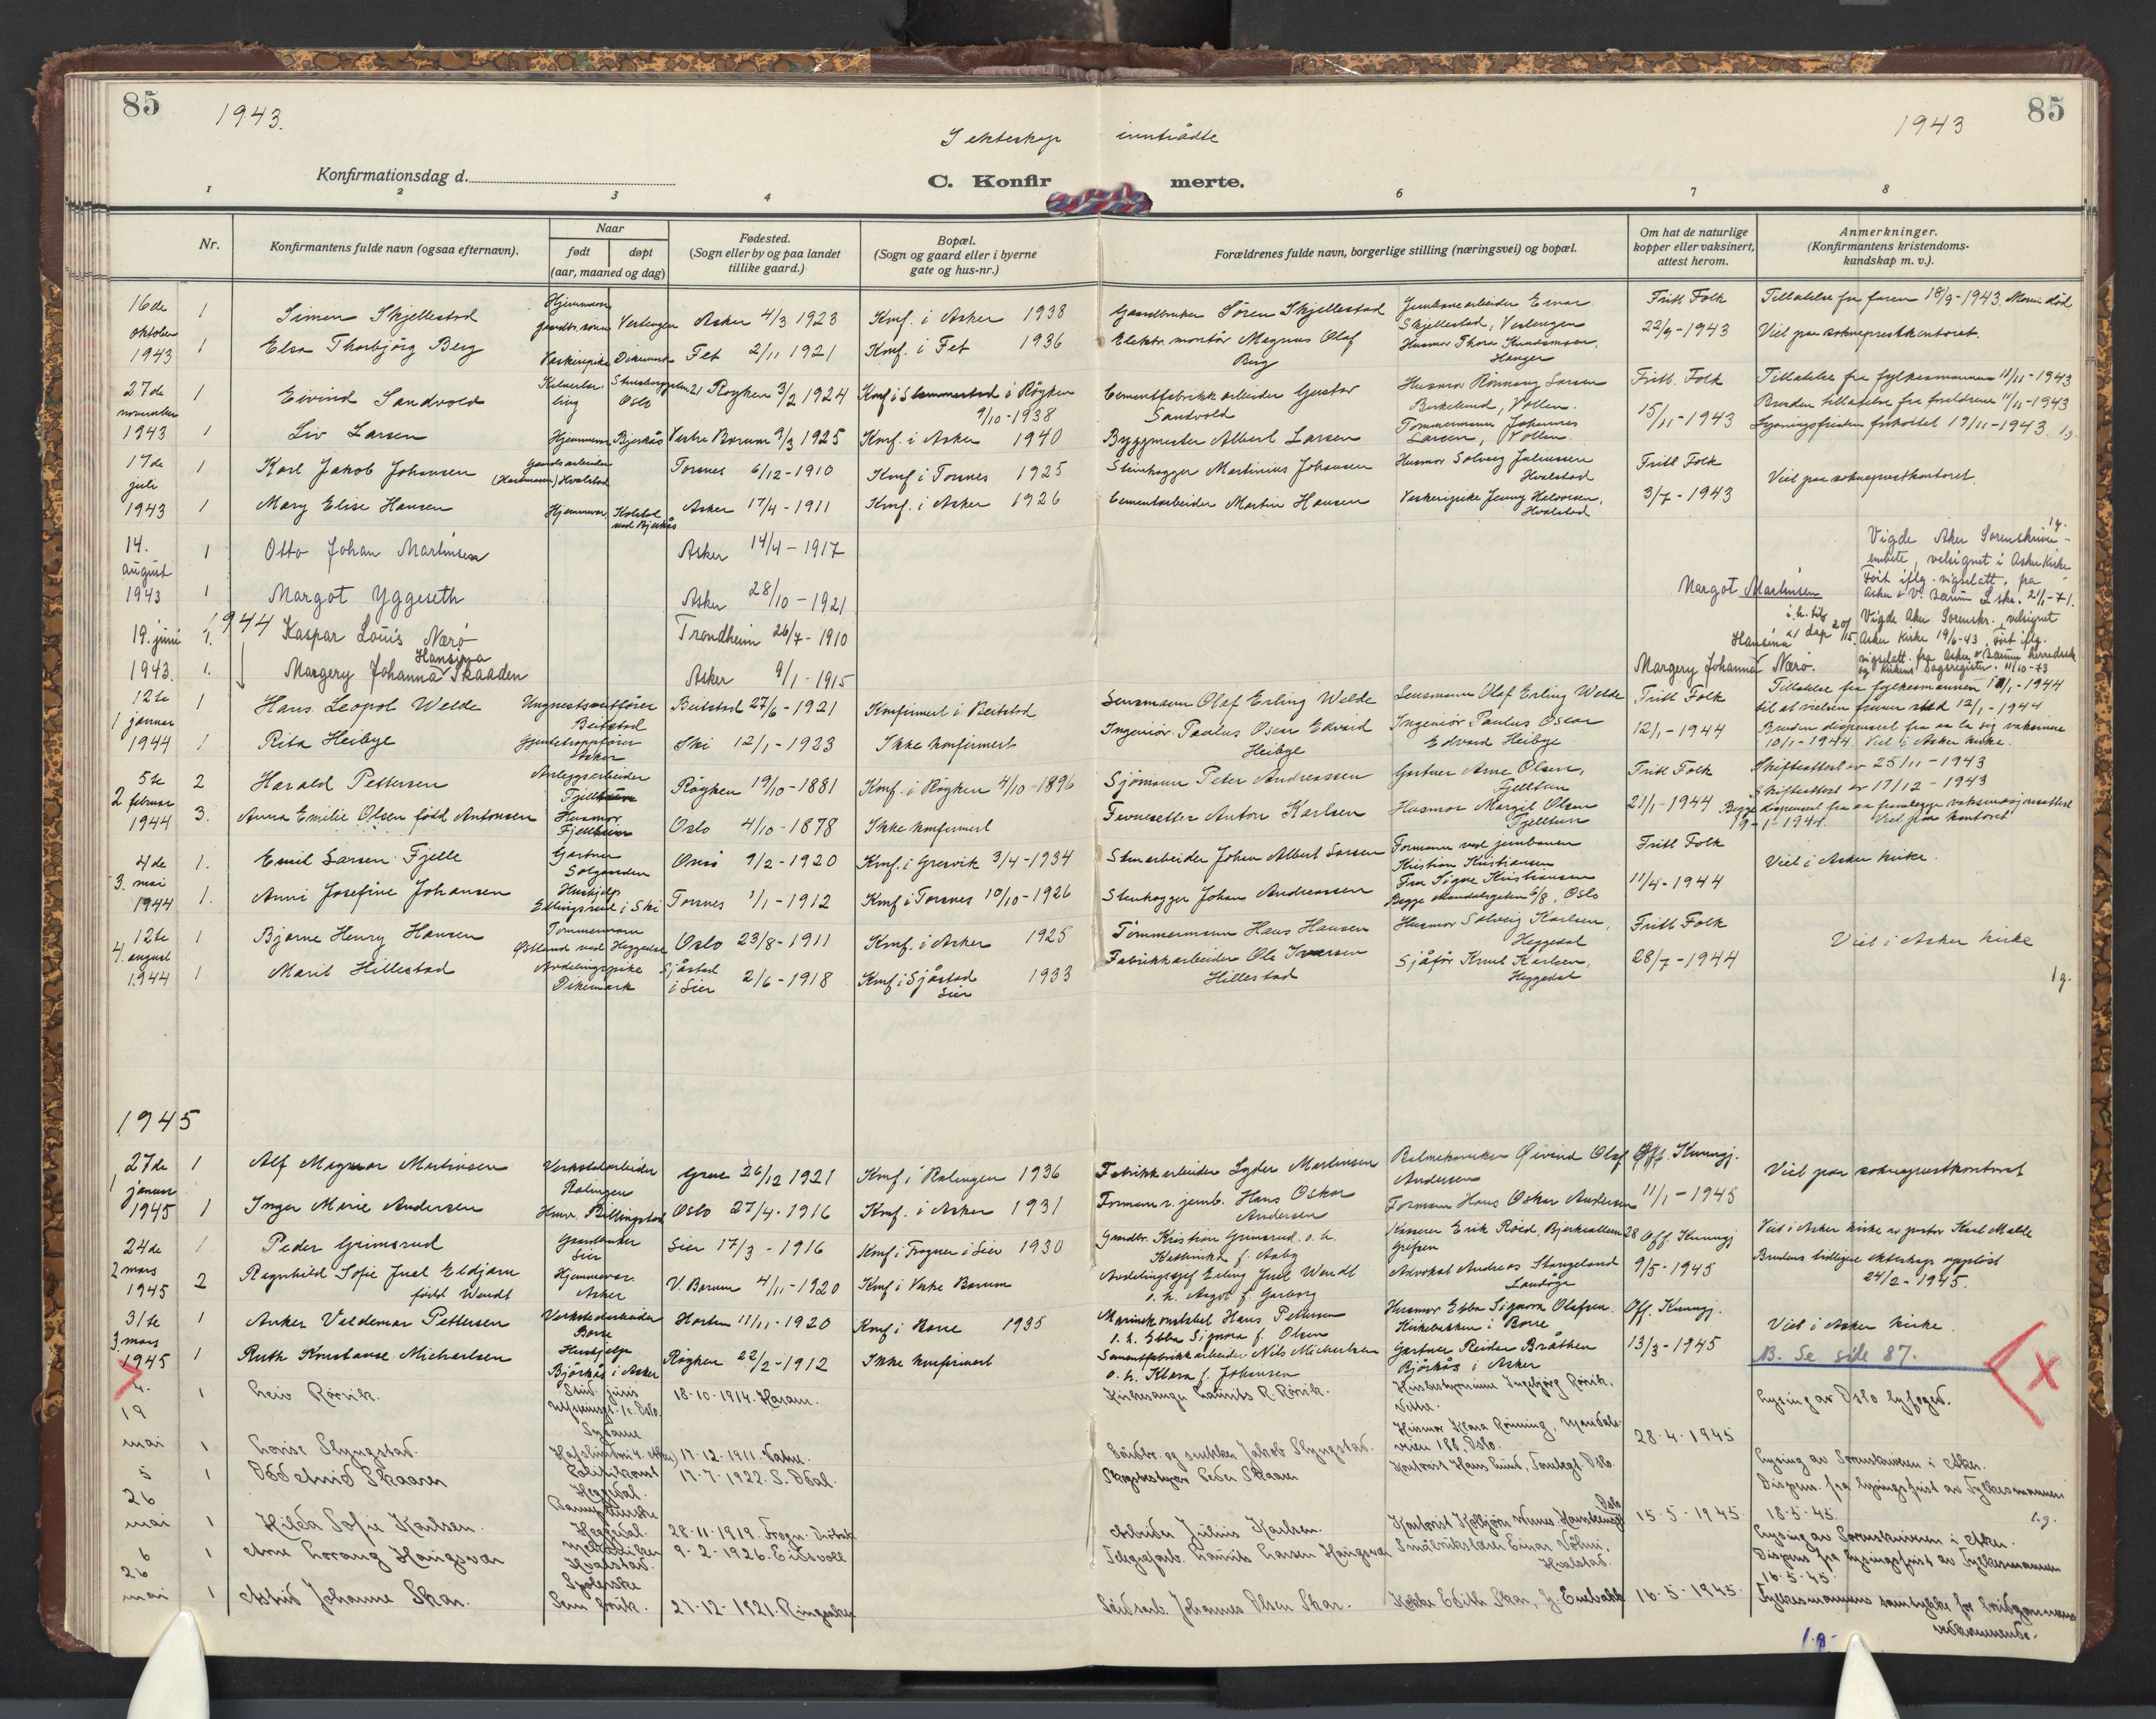 85
1943.
I ekteskap inntrådte
1943
85
Konfirmationsdag d.
C. Konfirmerte.
1 2 3 4 6 7 8
Nr.
Konfirmantens fulde navn (ogsaa efternavn).
Naar
født døpt
(aar, maaned og dag)
Fødested.
(Sogn eller by og paa landet
tillike gaard.)
Bopæl.
(Sogn og gaard eller i byerne
gate og hus-nr.)
Forældrenes fulde navn, borgerlige stilling (næringsvei) og bopæl.
Om hat de naturlige
kopper eller vaksinert,
attest herom.
Anmerkninger.
(Konfirmantens kristendoms-
kundskap m. v.).
16de oktober 1943 1 Simen Skjellestad gaardbr. sønn Verlengen Asker 4/3 1923 Konf. i Asker 1938 Gaardbruker Sören Skjellestad Jernbanearbeider Einar Skjellestad, Verlengen Fritt Folk Tillatelse fra faren 18/9-1943. Moren död
1 Elsa Thorbjörg Berg Vaskeripike Dikemark Fet 2/11 1921 Konf. i Fet 1936 Elektr. montör Magnus Olaf Berg Husmor Thora Knudsmoen, Hanger 22/9-1943 Viet paa sokneprestkontoret.
27de november 1943 1 Eivind Sandvold Oslo Röyken 3/2 1924 Konf. i Slemmestad i Röyken 9/10-1938 Cementfabrikkarbeider Gustav Sandvold Husmor Rönnaug Larsen Birkelund, Vollen. Fritt Folk Tillatelse fra fylkesmannen 11/11-1943
1 Liv Larsen Hjemmevær. Bjerkås Vestre Bærum 9/3 1925 Konf. i Asker 1940 Byggmester Albert Larsen Tömmermann Johannes Larsen, Vollen. 15/11-1943 Bruden tillatelse fra foreldrene 11/11-1943
Lysningsfristen forkortet 19/11-1943. lg.
17de juli 1943 1 Karl Jakob Johansen Gaardsarbeider Hvalstad Torsnes 6/12-1910 Konf i Torsnes 1925 Steinhugger Martinius Johansen Husmor Solveig Juliussen Hvalstad Fritt Folk Viet paa sokneprestkontoret.
1 Mary Elise Hansen Hjemmevær. Kolstad ved Bjerkås Asker 17/4-1911 Konf. i Asker 1926 Cementarbeider Martin Hansen Vaskeripike Jenny Halvorsen, Hvalstad 3/7-1943
14. august 1943 1 Otto Johan Martinsen Asker 14/4-1917 Vigde Aker Sorenskriver-
embete, velsignet i Asker Kirke
1 Margot Yggeseth Asker 28/10-1921 Margot Martinsen Ført iflg. vigselatt. fra
Asker & V. Bærum L. skr. 21/1-71.
1944
19. juni 1943. 1. Kaspar Louis Nærø Trondheim 26/7-1910 Vigde Aker Sorenskr., velsignet
Asker Kirke 19/6-43. Ført iflg.
1. Margery Johanna Hansina Skaaden Asker 9/1-1915 Margery Johanna Hansina Nærø. vigselatt. fra Asker & Bærum herredsrett
og Kirkens Dagsregister. 11/10-73
12te januar 1944 1 1 Hans Leopol Welde Beitstad Beitstad 27/6-1921 Konfirmert i Beitstad Lensmann Olaf Erling Welde Lensmann Olaf Erling Welde Fritt Folk Tillatelse fra fylkesmannen
til at vielsen finner sted 12/1-1944
1 Rita Heibye Jentetroppförer Asker Ski 12/1-1923 Ikke konfirmert Ingeniör Paulus Oscar Edvard Heibye Ingeniör Paulus Oscar Edvard Heibye 12/1-1944 Bruden dispensert fra aa la sig vaksinere
10/1-1944. Viet i Asker kirke.
5te 2 februar 1944 2 Harald Pettersen Anleggsarbeider Fjelltun Röyken 19/10-1881 Konf. i Röyken 4/10-1896 Sjömann Peter Andreassen Gartner Arne Olsen, Fjelltun Fritt Folk Skifteattest av 25/11-1943
Skifteattest av 17/12-1943
3. Anna Emilie Olsen född Antonsen Husmor Oslo 4/10-1878 Ikke konfirmert Anton Karlsen Husmor Margit Olsen Fjelltun 21/1-1944 Begge dispensert fra aa framlegge vaksinasjonsattest
19-1-1944. Viet paa kontoret
4de 3. mai 1944 1. Emil Larsen Fjelle Gartner Solgaarden Onsö 9/2-1920 Konf. i Gresvik 3/4-1934 Stenarbeider Johan Albert Larsen Formann ved jernbanen Kristian Kristiansen Fritt Folk Viet i Asker kirke.
1. Anni Josefine Johansen Hushjelp Ellingsrud i Ski Torsnes 1/1-1912 Konf i Torsnes 10/10-1926 Stenhugger Johan Andreassen Fru Signe Kristiansen Begge Mandalsgaten 6/8, Oslo 11/4-1944
12te 4. august 1944 1 Bjarne Henry Hansen Tömmermann Östlund ved Heggedal Oslo 23/8-1911 Konf. i Asker 1925 Tömmermann Hans Hansen Husmor Solveig Karlsen, Heggedal Fritt Folk Viet i Asker kirke
1 Marit Hillestad Avdelingspike Dikemark Sjåstad i Lier 2/6-1918 Konf. i Sjåstad Lier 1933 Fabrikkarbeider Ole Iversen Hillestad Sjåför Knut Karlsen, Heggedal 28/7-1944 lg.
1945
27de 1 januar 1945 1 Alf Magnar Martinsen Verkstedarbeider Rælingen Grue 26/12 1921 Konf. i Rælingen 1936 Fabrikkarbeider Lyder Martinsen Bilmekaniker Öivind Olaf Andersen Off. Kunngj. Viet paa sokneprestkontoret
1 Inger Marie Andersen Billingstad Oslo 27/4-1916 Konf. i Asker 1931 Formann v. jernb. Hans Oskar Andersen Formann Hans Oskar Andersen 11/1-1945
24de 2 mars 1945 1 Peder Grimsrud Gaardbruker Lier Lier 17/3-1916 Konf. i Frogner i Lier 1930 Gaardbr. Kristian Grimsrud o. h. Kathinka f. Aaby Kasserer Erik Röed, Bjerkealleen 28 Grefsen Off. Kunngj Viet i Asker kirke av pastor Karl Malde
2 Ragnhild Sofie Juel Eldjarn född Wendt Hjemmevær. Asker V. Bærum 4/11-1920 Konf i Vestre Bærum Avdelingssjef Erling Juel Wendt o. h. Aagot f. Garborg Advokat Andreas Stangeland Landöya 9/5-1945 Brudens tidligere ekteskap opplöst
24/2-1945.
31te 3. mars 1945 1 Anker Valdemar Pettersen Verkstedarbeider Borre Horten 11/11-1920 Konf i Borre 1935 Hans Pettersen o. h. Ebba Signora f. Olsen Husmor Ebba Signora Olafsen. Kirkebakken i Borre Off. Kunngj. Viet i Asker kirke.
1 Ruth Konstanse Michaelsen Hushjelp Björkås i Asker Röyken 22/2-1912 Ikke konfirmert Sementfabrikkarbeider Nils Michaelsen o. h. Klara f. Johansen Gartner Reidar Bråthen Björkås i Asker 13/3-1945 B. Se side 87. X
4. 19 mai 1 Leiv Rörvik. Stud. juris Oslo. 18-10-1914. Haram. Kirkesanger Laurits R. Rörvik. Husbestyrerinne Ingebjörg Rörvik, Lysing av Oslo byfoged.
1 Lovise Slyngstad. Syerske 17-12-1911. Vatne. Gårdbr. og snekker Jakob Slyngstad. Husmor Klara Rönning, Maridalsveien 188, Oslo. 28-4-1945
5 26 mai 1 Odd Arvid Skaaren Politikonst Heggedal. 17-7-1922. S. Odal. Skogbestyrer Peder Skaaren Kontorist Hans Lund, Oslo. Lysing av Sorenskriveren i Asker.
Dispens. fra lysingsfrist av Fylkesmannen
1 Hilda Sofie Karlsen. Heggedal. 28-11-1919. Frogn. Dröbak Arbeider Julius Karlsen. Kontorist Kolbjörn Oslo 15-5-1945 18-5-45. lg.
6 26 mai 1 Arne Lorang Haugsvær Mekaniker Hvalstad. 9-2-1926. Eidsvoll Telegrafarb. Laurits Larsen Haugsvær Småbrukslærer Einar Völmi, Hvalstad. Lysing av Sorenskriveren i Asker.
Dispens fra lysingsfrist av Fylkesmannen
16-5-45.
1 Astrid Johanne Skar. Spolerske Sem bruk. 27-12-1921. Ringsaker Gårdsarb. Johannes Olsen Skar. Kokke Edith Skar, 16-5-1945. Fylkesmannens samtykke for brudgommens
vedkommende.
l.g.